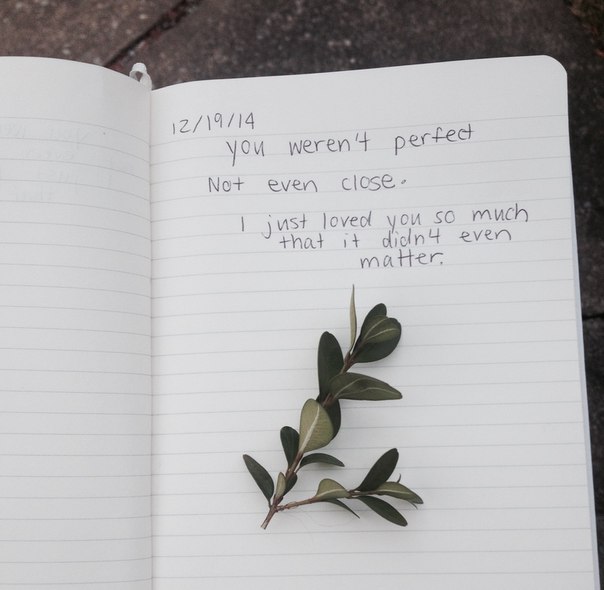 12/19/14
you weren't perfect
Not even close.
I just loved you so much
that it didn't even
matter.